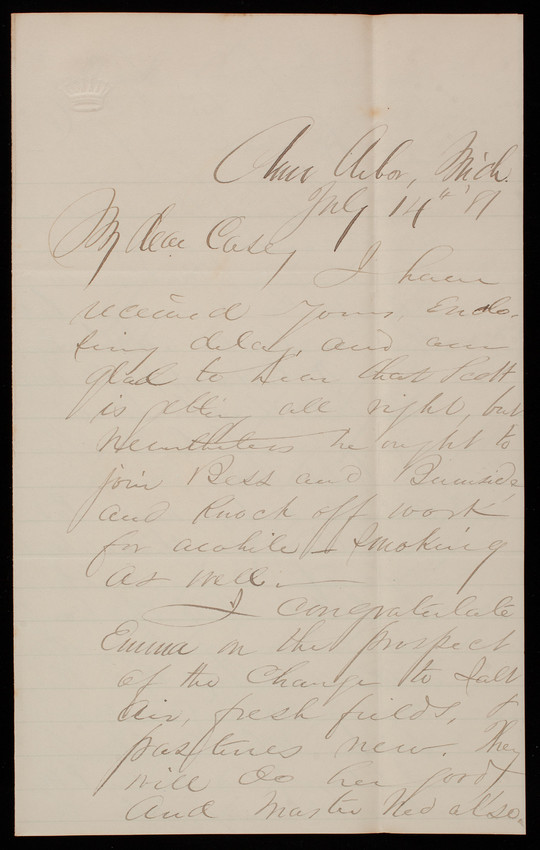 Ann Arbor, Mich.
July 14th '81
My dear Casey
I have
received yours, enclo-
sing delay, and am
glad to hear that Scott
is getting all right, but
nevertheless he ought to
join Bess and Burnside
and knock off work
for awhile – smoking
as well. –
I congratulate
Emma on the prospect
of the change to salt
air, fresh fields, &
pastures new. They
will do her good &
and Master Ned also.